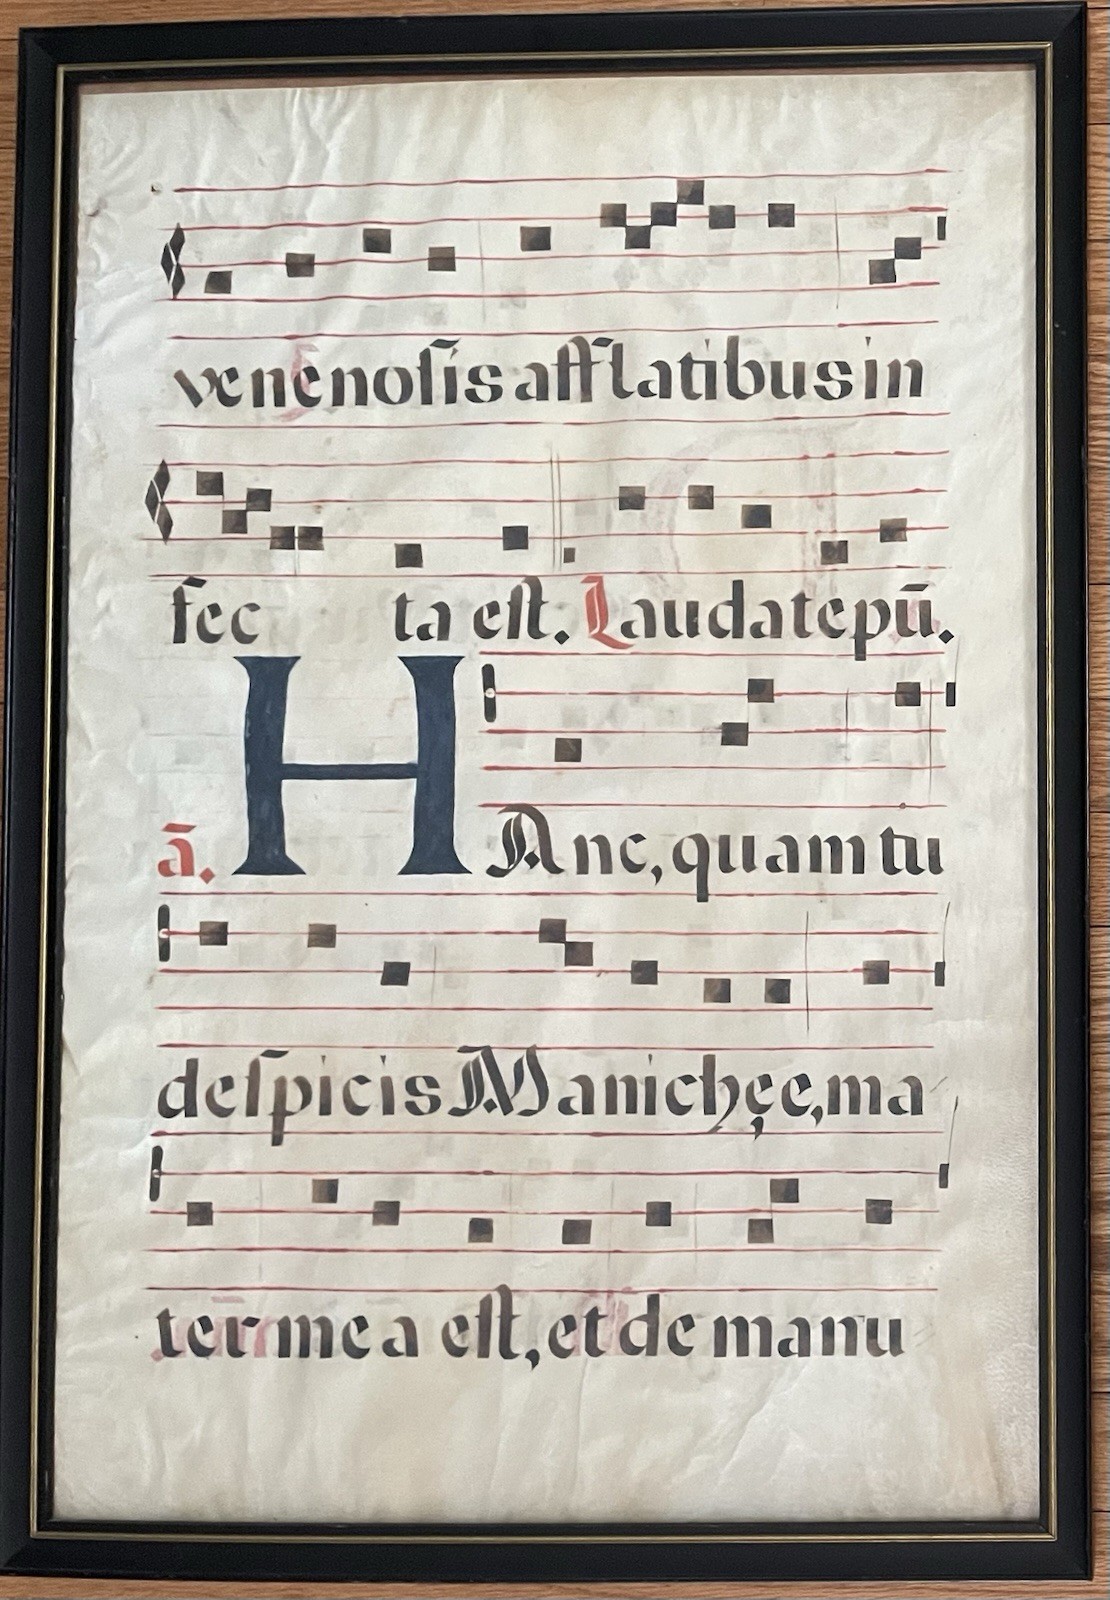 venenoſis afflatibus in
fec ta eſt. Laudate pū.
ā. HAnc, quam tu
deſpicis Manichęe, ma
ter mea eſt, et de manu